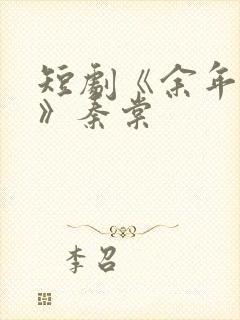 短剧《余年
》秦棠
李召